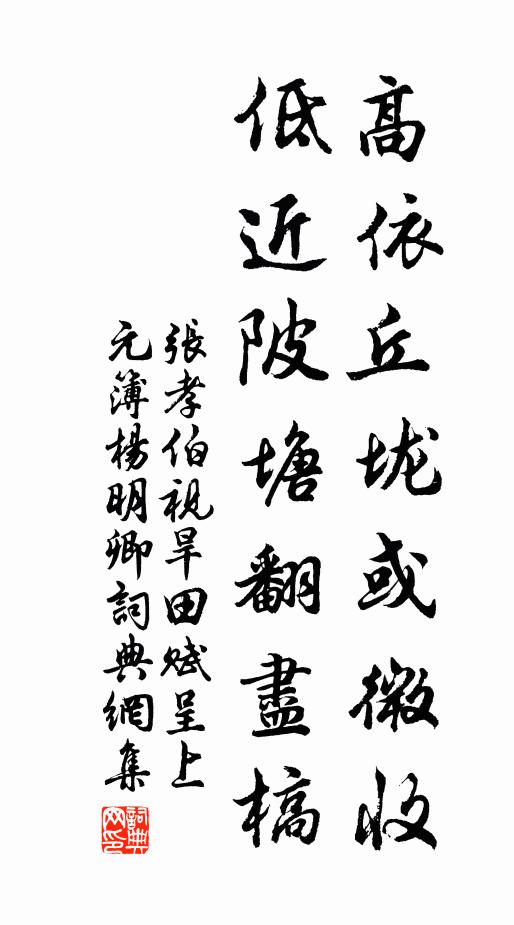 高依丘垅或微收
低近陂塘翻盡槁
張孝伯視旱田賦呈上
元簿楊明卿詞典網集
詞典网印